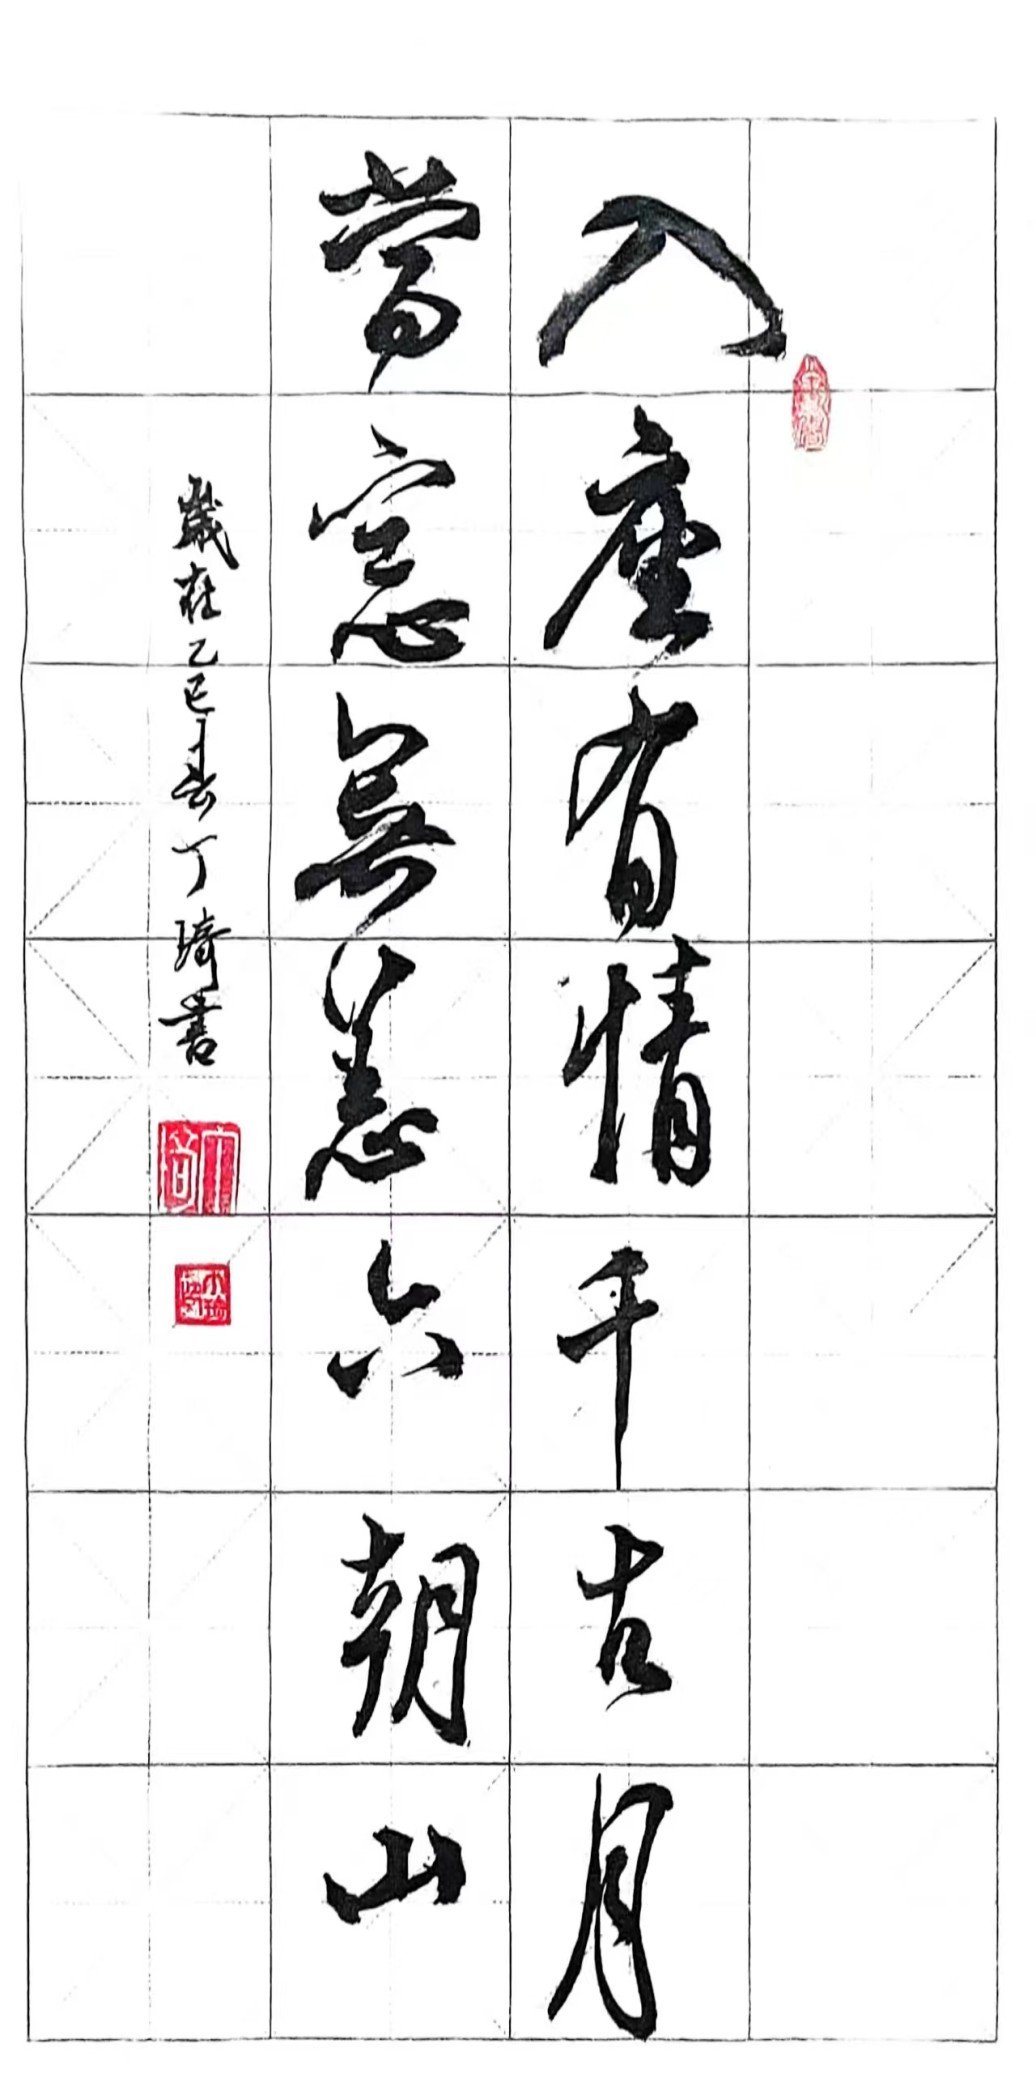 入座有情千古月
當窓無恙六朝山
歲在乙巳春丁琦書